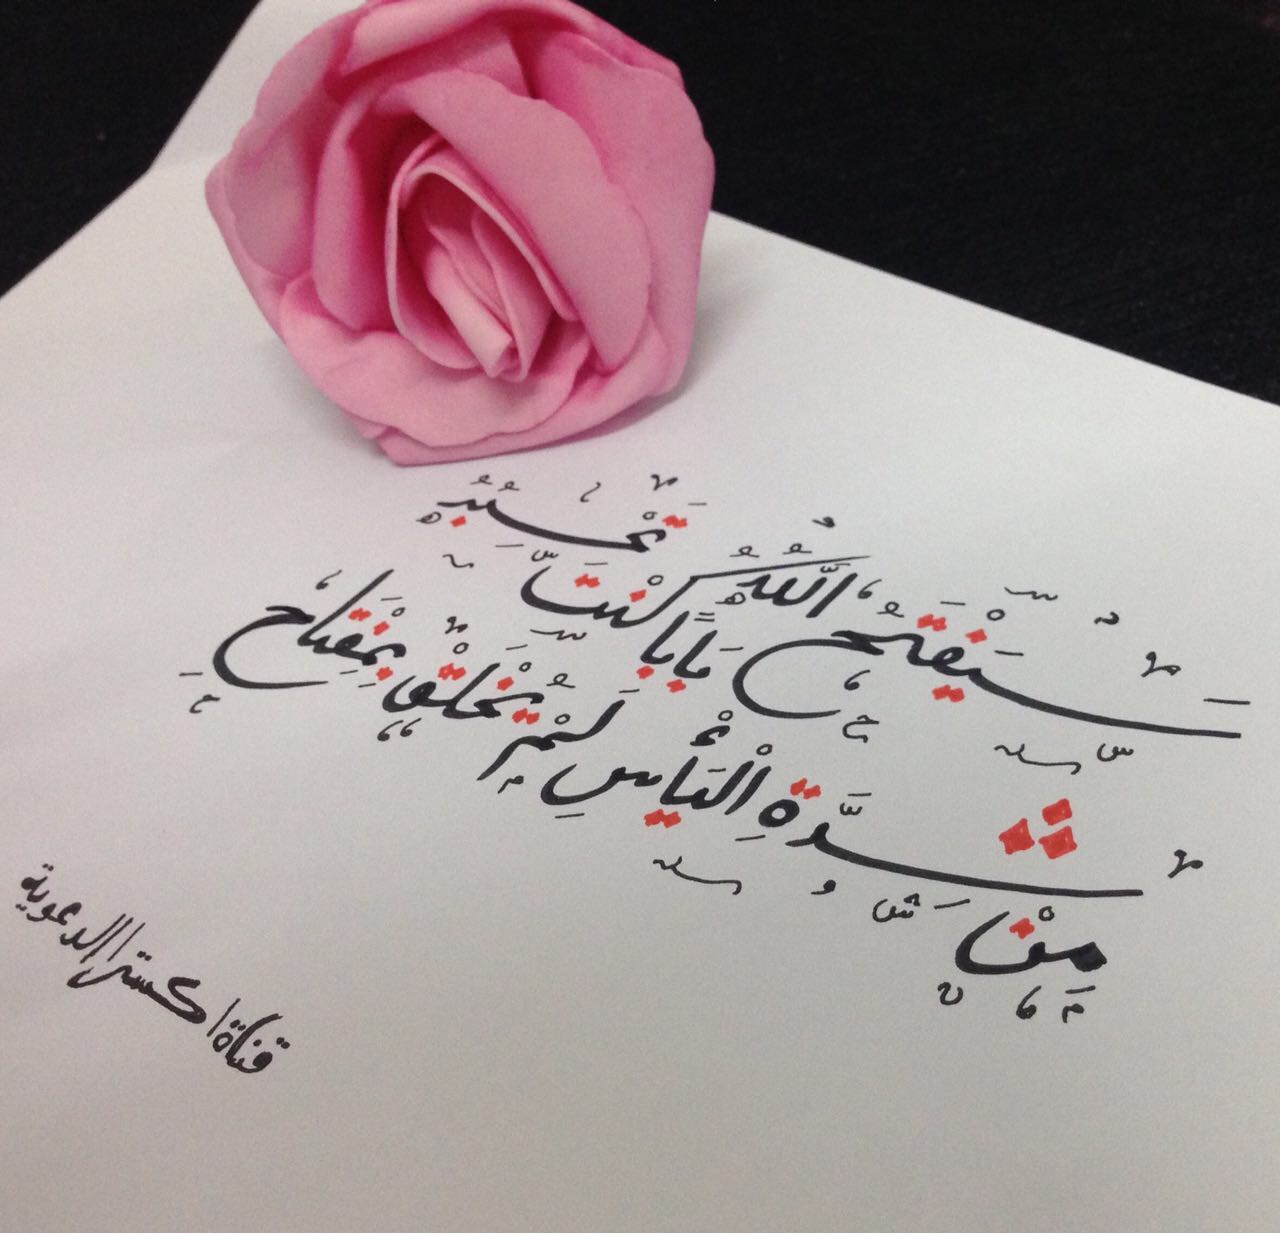 سَيَفْتَحُ اللَّهُ بَابًا كُنْتَ تَحْسَبُهُ
مِنْ شِدَّةِ الْيَأْسِ لَمْ يُخْلَقْ بِمِفْتَاحِ
قناة اكسترا الدعوية